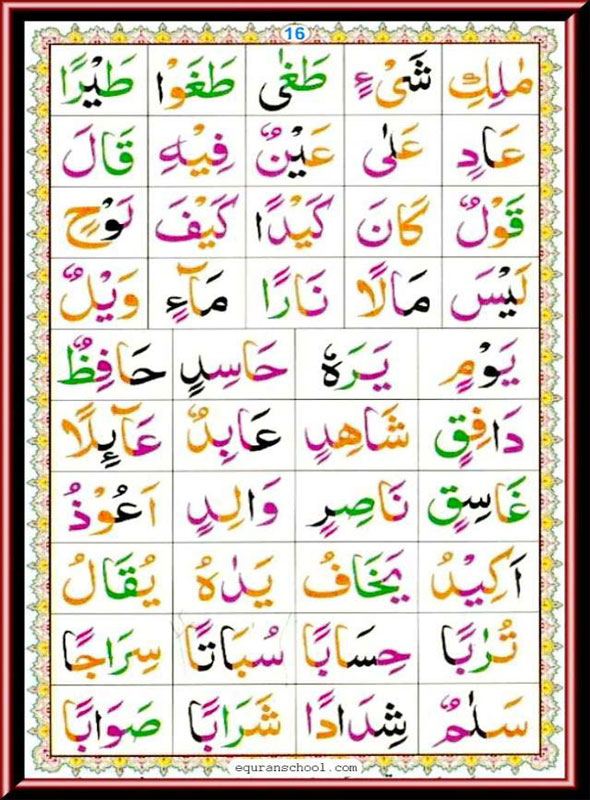 16
مٰلِكِ شَیْءٍ طَغٰی طَغَوْا طَيْرًا
عَادٍ عَلٰی عَيْنٌ فِيْهِ قَالَ
قَوْلٌ كَانَ كَيْدًا كَيْفَ لَوْحٍ
لَيْسَ مَالًا نَارًا مَآءٍ وَيْلٌ
يَوْمٍ يَرَهٗ حَاسِدٍ حَافِظٌ
دَافِقٍ شَاهِدٍ عَابِدٌ عَآئِلًا
غَاسِقٍ نَاصِرٍ وَالِدٍ اَعُوْذُ
اَكِيْدُ يَخَافُ يَدٰهُ يُقَالُ
تُرٰبًا حِسَابًا سُبَاتًا سِرَاجًا
سَلٰمٌ شِدَادًا شَرَابًا صَوَابًا
equranschool.com